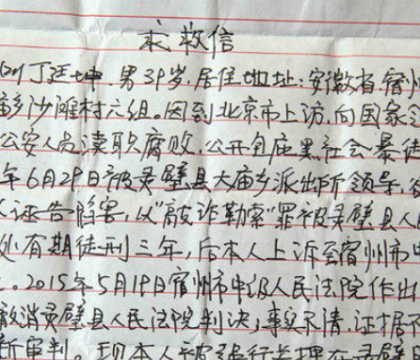 求救信
丁廷坤.男39岁.居住地址:安徽省宿州
乡沙滩村六组.因到北京市上访.向国家
公安人员渎职腐败.公开包庇黑社会暴徒
年6月29日被灵壁县大庙乡派出所领导,
诬告陷害,以“敲诈勒索”罪被灵壁县人
处有期徒刑三年,后本人上诉至宿州市中
.2015年5月19日宿州市中级人民法院作出
撤消灵壁县人民法院判决,事实不清.证据不
新审判.现本人被